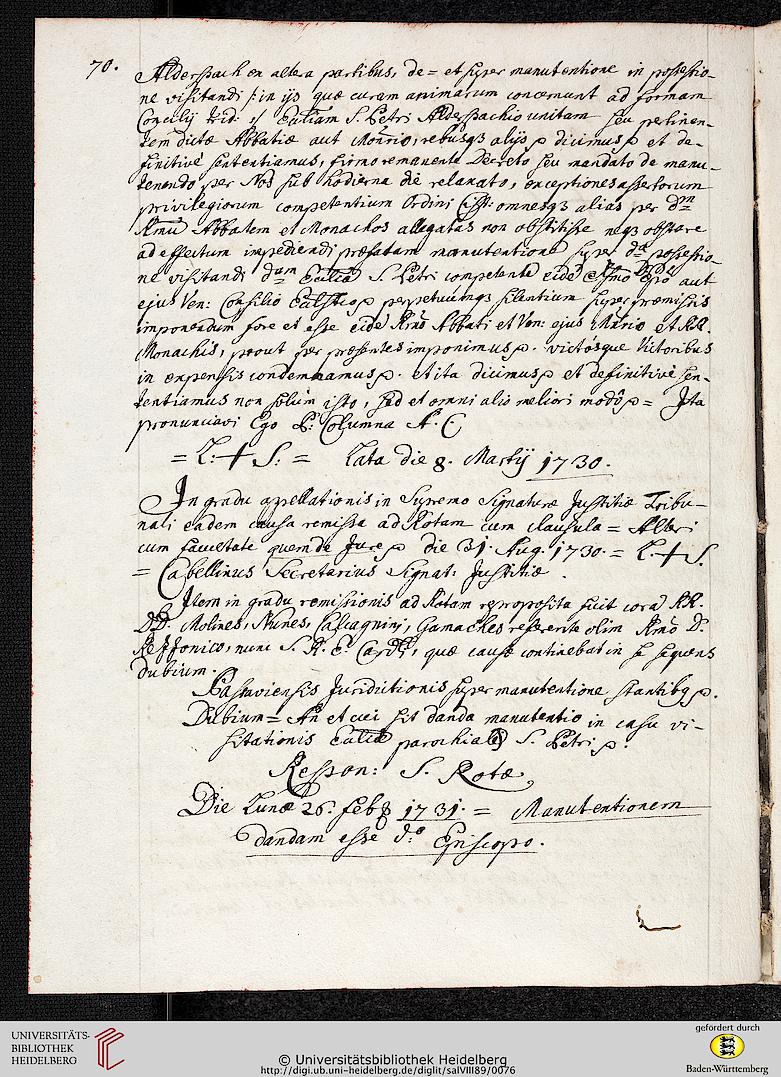 70.
Alderspach ex altera partibus, de= et super manutentione in possessio-
ne visitandi /: in ijs quæ curam animarum concernunt ad formam
Concilij Trid: :/ Ecc̄liam S. Petri Alderspachio unitam seu pertinen-
tem dictæ Abbatiæ aut Mon̄rio, rebusq3 alijs p dicimus p et de-
finitivè sententiamus, firmo remanente Decreto seu mandato de manu-
tenendo per Nos sub hodierna die relaxato, exceptiones assertorum
privilegiorum competentium Ordini Cist: omnesq3 alias per dm̄
Rm̄ū Abbatem et Monachos allegatas non obstitisse neq3 obstare
ad effectum impediendi præfatam manutentionē super dā possessio-
ne visitandi dam Ecc̄liā S. Petri competentē eidē aut
ejus Ven: Consilio p perpetuumq3 silentium super præmissis
imponendum fore et esse eidē Rm̄o Abbati et Ven: ejus Mn̄rio et RR.
Monachis, prout per præsentes imponimus p. victosque Victoribus
in expensis condemnamus p. et ita dicimus p et definitivè sen-
tentiamus non solum isto, sed et omni alio meliori modô p = Ita
pronunciavi Ego P: Columna A. C,
= L: + S: = Lata die 8. Martij 1730.
In gradu appellationis in Supremo Signaturæ Justitiæ Tribu-
nali eadem causa remissa ad Rotam cum clausula = Alteri
cum facultate quem de Jure p die 31. Aug. 1730. = L. + S.
= Cabellinus Secretarius Signat: Justitiæ.
Item in gradu remissionis ad Rotam reproposita fuit corā RR.
DD. Molines, Nunes, Calcagnini, Gamaches referente olim Rm̄o D.
nunc S. R. E. Card: quæ causæ continebat in se sequens
Dubium.
Passaviensis Juridictionis super manutentione stantibq p.
Dubium = An et cui sit danda manutentio in casu vi-
sitationis Ecc̄liæ parochialis S. Petri p.
Respon: S. Rotæ,
Die Lunæ 26. feb 1731. = Manutentionem
dandam esse d.o Episcopo.
UNIVERSITÄTS-
BIBLIOTHEK
HEIDELBERG
© Universitätsbibliothek Heidelberg
http://digi.ub.uni-heidelberg.de/diglit/salVIII89/0076
gefördert durch
Baden-Württemberg